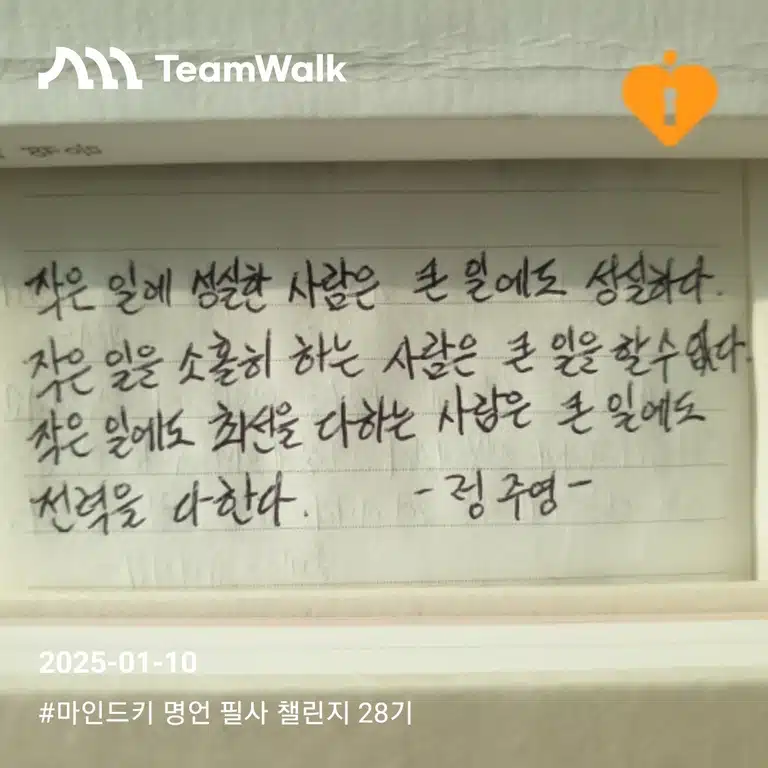 TeamWalk
작은 일에 성실한 사람은 큰 일에도 성실하다.
작은 일을 소홀히 하는 사람은 큰 일을 할 수 없다.
작은 일에도 최선을 다하는 사람은 큰 일에도
전력을 다한다. - 정주영 -
2025-01-10
#마인드키 명언 필사 챌린지 28기